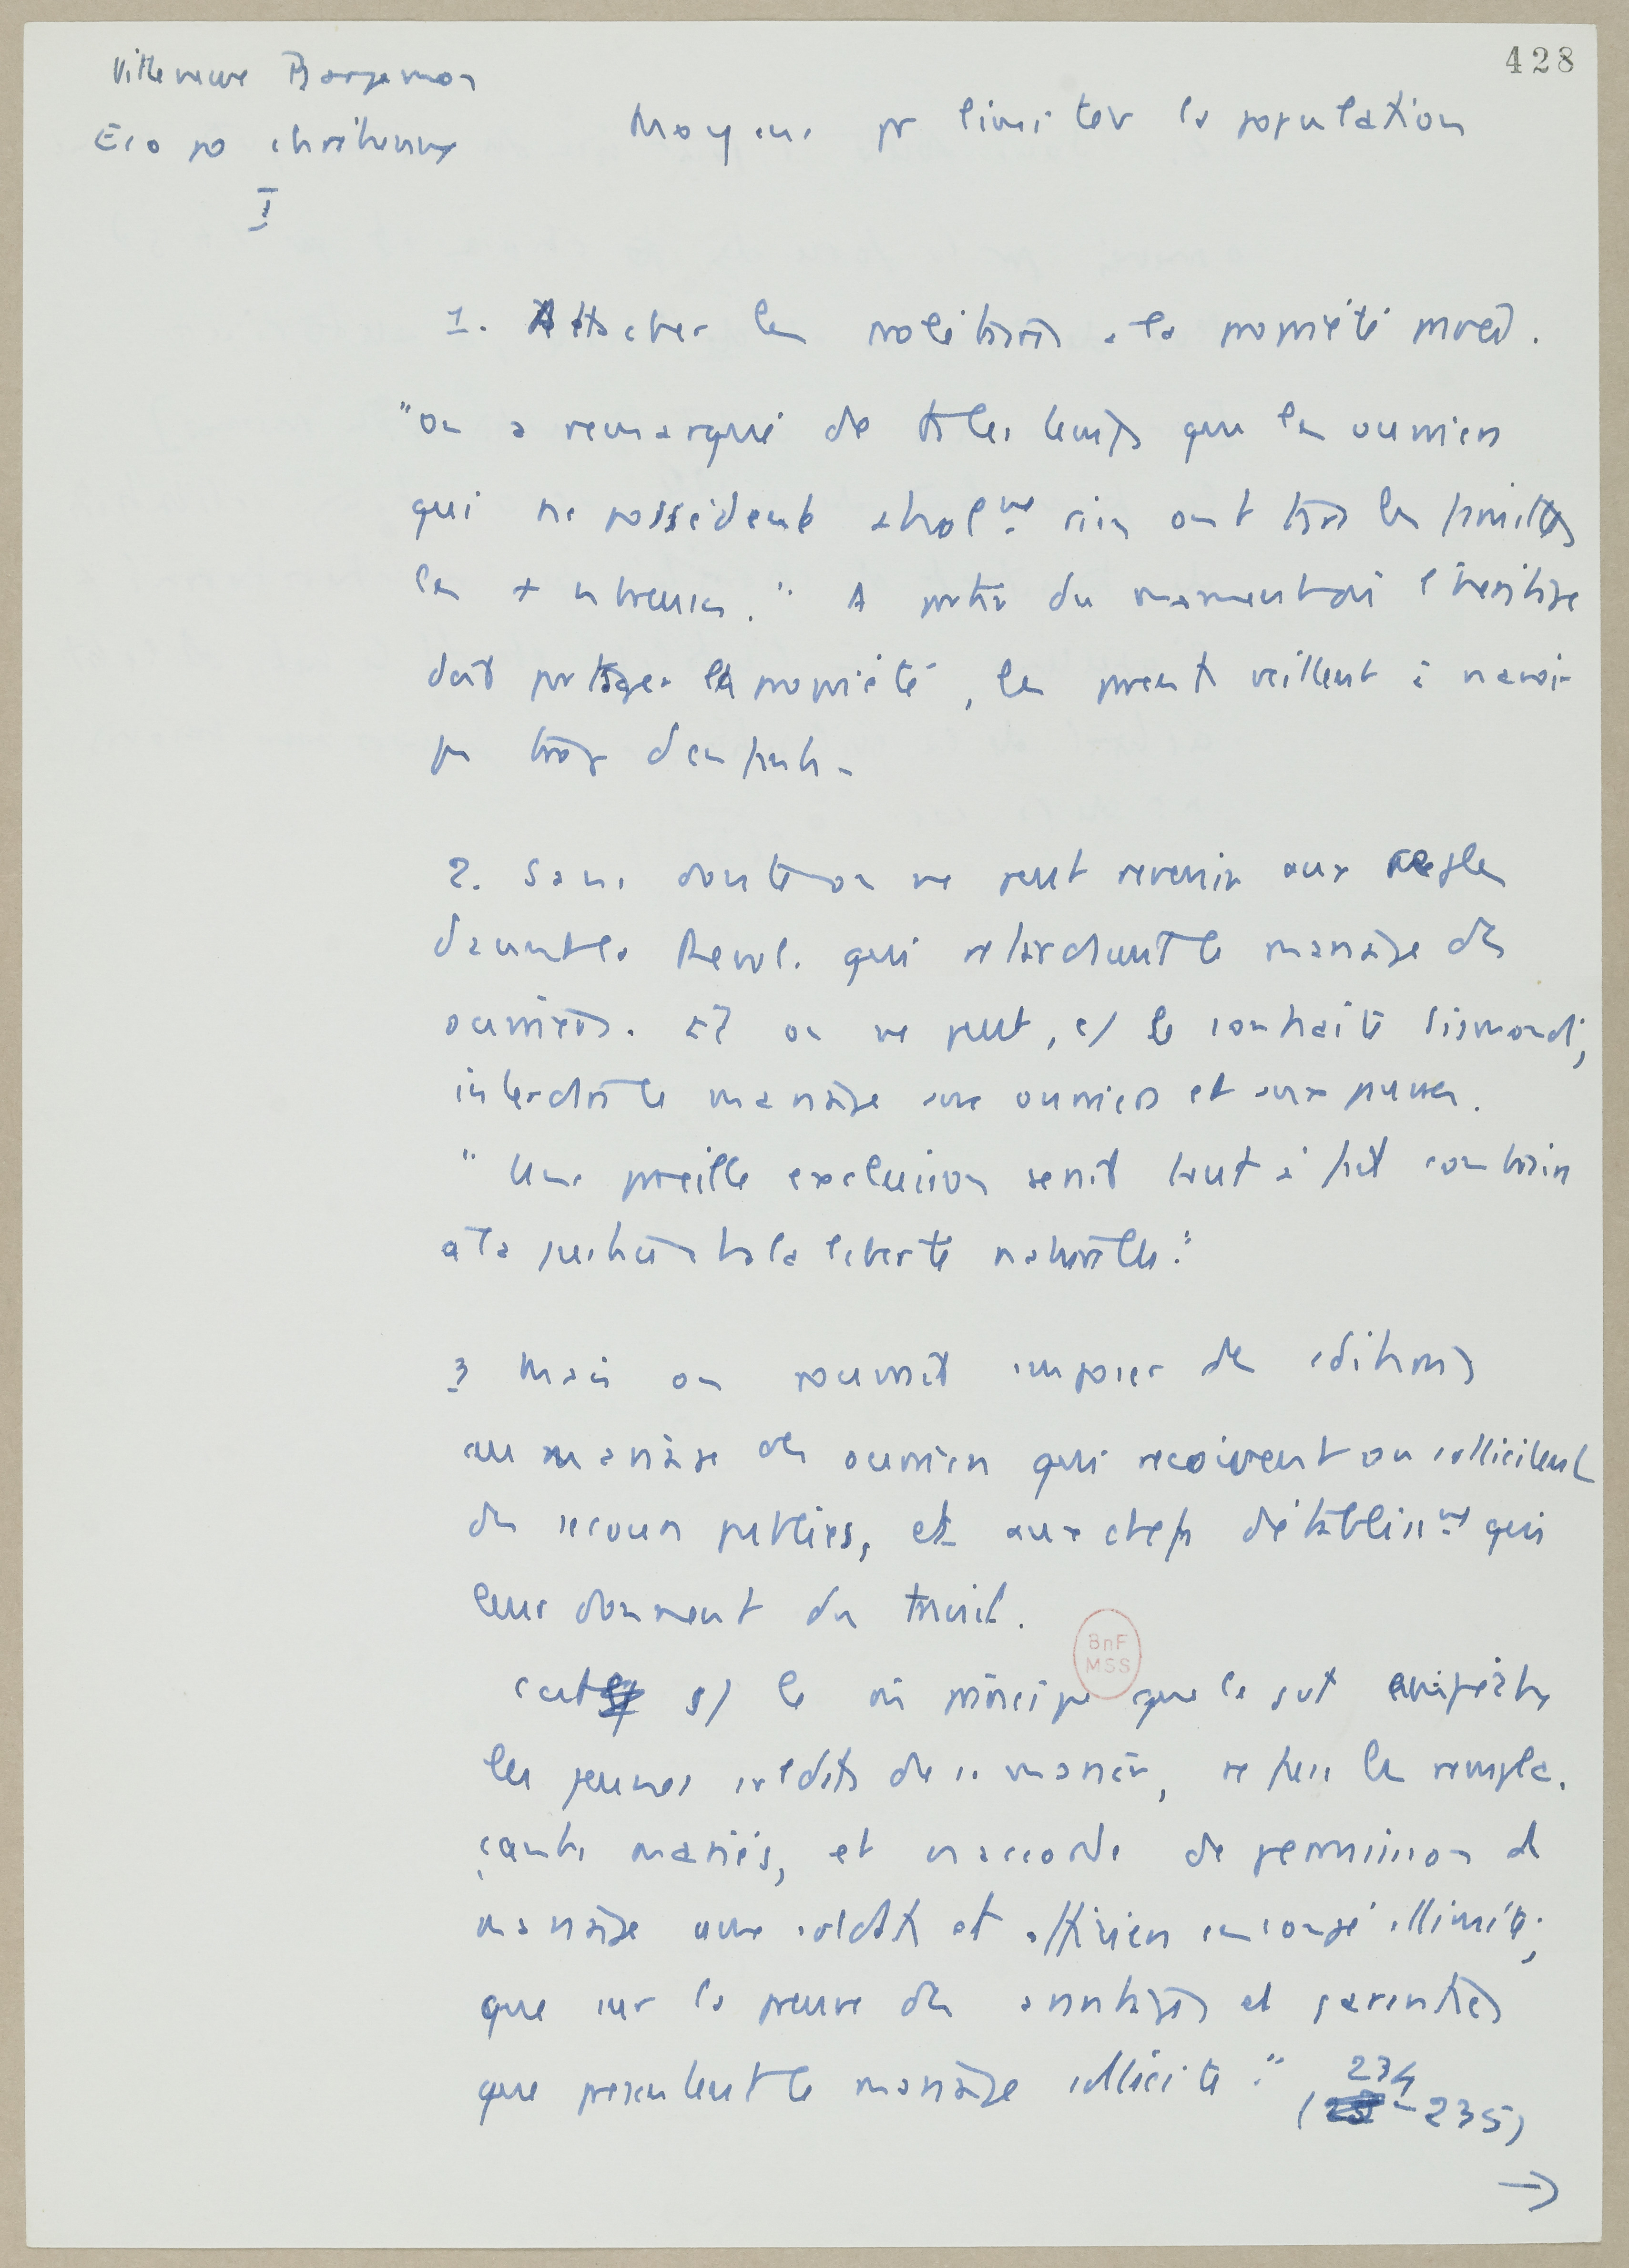 428
Villeneuve Bargemon
Eco po chrétienne
I
Moyens pr limiter la population
1. Attacher les prolétaires à la propriété
"on a remarqué de ts les temps que les ouvriers
qui ne possèdent absolmt rien ont ts les familles
les + nbreuses." A partir du moment où l'héritage
doit partager la propriété, les parents veillent à n'avoir
pas trop d'enfants.
2. Sans doute on ne peut revenir aux règles
d'avant la Revol. qui retardaient le mariage des
ouvriers. Et on ne peut, c/ le souhaite Sismondi,
interdire le mariage aux ouvriers et aux pauvres.
"Une pareille exclusion serait tout à fait contraire
à la justice et à la liberté naturelle."
3 Mais on pourrait imposer des cditions
au mariage des ouvriers qui reçoivent ou sollicitent
des secours publics, et aux chefs d'établissmt qui
leur donnent du travail.
C'est s/ le mê principe que la gvt empêche
les jeunes soldats de se marier, refuse les rempla-
çants mariés, et n'accorde de permission de
mariage aux soldats et officiers en congé illimité,
que sur la preuve des avantages et garanties
que présentent le mariage sollicité." (234-235)
→
BnF
MSS